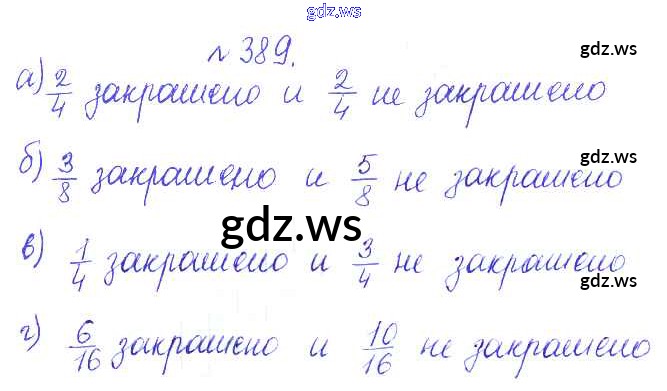 gdz.ws
№ 389. gdz.ws
а) 2/4 закрашено и 2/4 не закрашено
gdz.ws
б) 3/8 закрашено и 5/8 не закрашено
gdz.ws
gdz.ws
в) 1/4 закрашено и 3/4 не закрашено
gdz.ws
г) 6/16 закрашено и 10/16 не закрашено